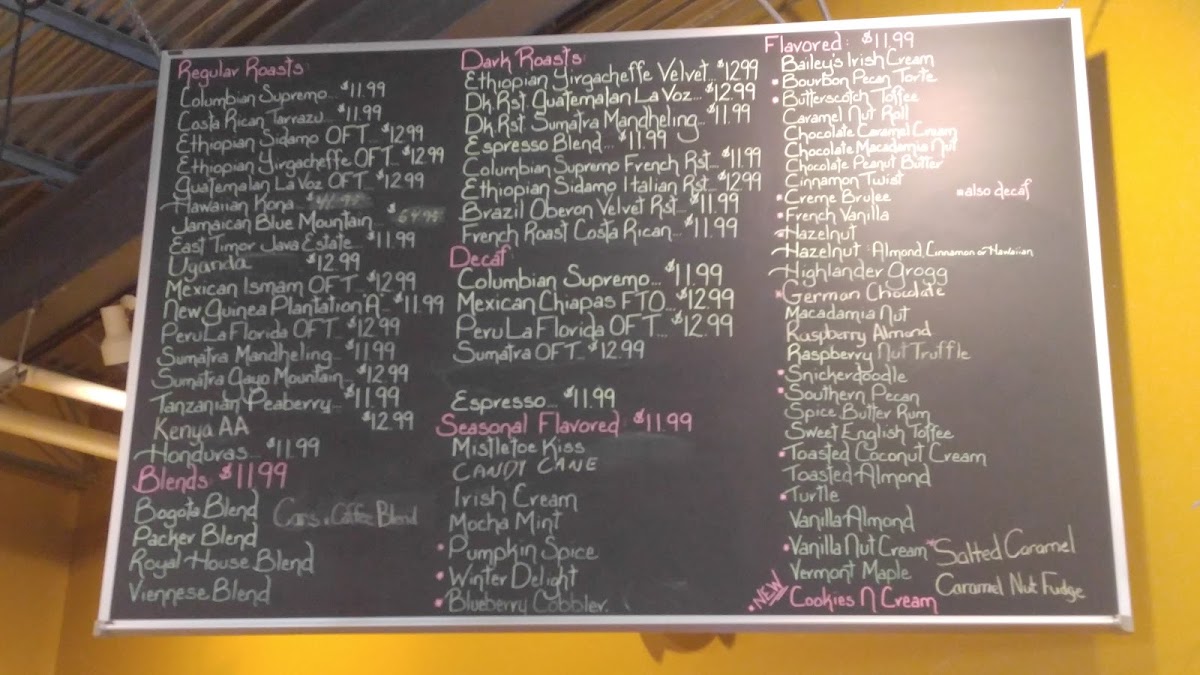 Regular Roasts:
Columbian Supremo... $11.99
Costa Rican Tarrazu... $11.99
Ethiopian Sidamo OFT... $12.99
Ethiopian Yirgacheffe OFT... $12.99
Guatemalan La Voz OFT... $12.99
Hawaiian Kona...
Jamaican Blue Mountain... $64.95
East Timor Java Estate... $11.99
Uganda $12.99
Mexican Ismam OFT... $12.99
New Guinea Plantation A... $11.99
Peru La Florida OFT... $12.99
Sumatra Mandheling... $11.99
Sumatra Gayo Mountain... $12.99
Tanzanian Peaberry... $11.99
Kenya AA $12.99
Honduras... $11.99
Blends $11.99
Bogota Blend
Cars & Coffee Blend
Packer Blend
Royal House Blend
Viennese Blend
Dark Roasts:
Ethiopian Yirgacheffe Velvet... $12.99
Dk. Rst. Guatemalan La Voz... $12.99
Dk. Rst. Sumatra Mandheling... $11.99
Espresso Blend... $11.99
Columbian Supremo French Rst... $11.99
Ethiopian Sidamo Italian Rst... $12.99
Brazil Oberon Velvet Rst... $11.99
French Roast Costa Rican... $11.99
Decaf:
Columbian Supremo... $11.99
Mexican Chiapas FTO... $12.99
Peru La Florida OFT... $12.99
Sumatra OFT... $12.99
Espresso... $11.99
Seasonal Flavored: $11.99
Mistletoe Kiss
CANDY CANE
Irish Cream
Mocha Mint
• Pumpkin Spice
• Winter Delight
• Blueberry Cobbler
Flavored: $11.99
Bailey's Irish Cream
• Bourbon Pecan Torte
• Butterscotch Toffee
Caramel Nut Roll
Chocolate Caramel Cream
Chocolate Macadamia Nut
Chocolate Peanut Butter
Cinnamon Twist
*also decaf
• Creme Brulee
• French Vanilla
• Hazelnut
Hazelnut: Almond, Cinnamon or Hawaiian
Highlander Grogg
• German Chocolate
Macadamia Nut
Raspberry Almond
Raspberry Nut Truffle
• Snickerdoodle
• Southern Pecan
Spice Butter Rum
Sweet English Toffee
• Toasted Coconut Cream
Toasted Almond
• Turtle
Vanilla Almond
• Vanilla Nut Cream
Vermont Maple
• NEW Cookies N Cream
* Salted Caramel
Caramel Nut Fudge